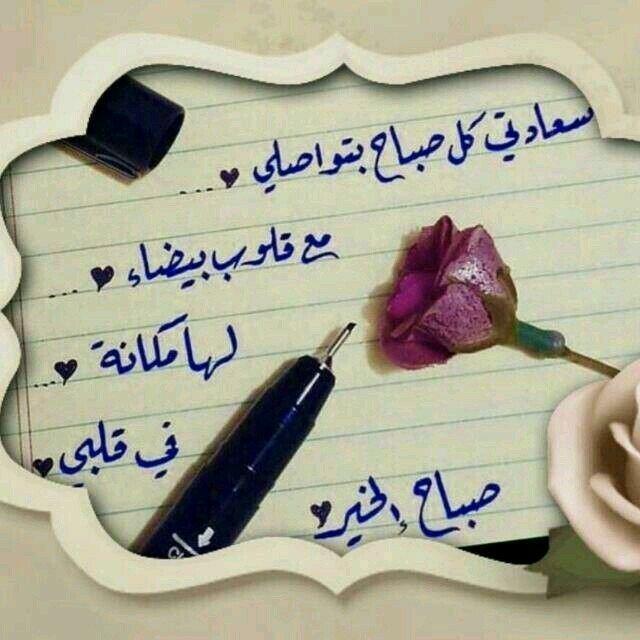 سعادتي كل صباح بتواصلي ...
مع قلوب بيضاء ...
لها مكانة ...
في قلبي
صباح إلخير